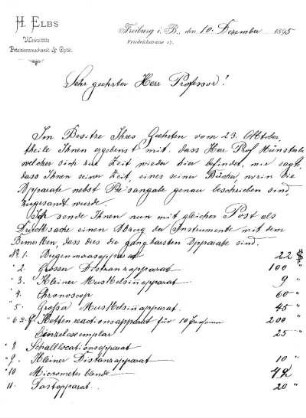 H. ELBS
Freiburg i. B., den 10. Dezember 1895
Friedrichstrasse
Sehr geehrter Herr Professor!
Im Besitze Ihres Geehrten vom 23. Oktober,
theile Ihnen ergebenst mit, dass Herr Prof. Münsterb.
welcher sich zur Zeit wieder hier befindet, mir sagt,
dass Ihnen seiner Zeit, eines seiner Bücher, worin die
Apparate nebst Preisangabe genau beschrieben sind,
zugesandt wurde.
Ich sende Ihnen nun mit gleicher Post als
Drucksache einen Abzug der Instrumente mit dem
Bemerken, dass dies die gangbarsten Apparate sind.
№ 1. Augenmassapparat 22 $
" 2. Grosser Distanzapparat 100 "
" 3. Kleiner Muskelsinnapparat 9 "
" 4. Chronoscop 60 "
" 5. Grosser Muskelsinnapparat 45 "
Kettenreactionsapparat für 10 Personen 200 "
Einzelexemplar 25 "
" 8 Schalllocationsapparat
" 9 Kleiner Distanzapparat 10 "
" 10 Micrometer
" 11 Tastapparat 20 "